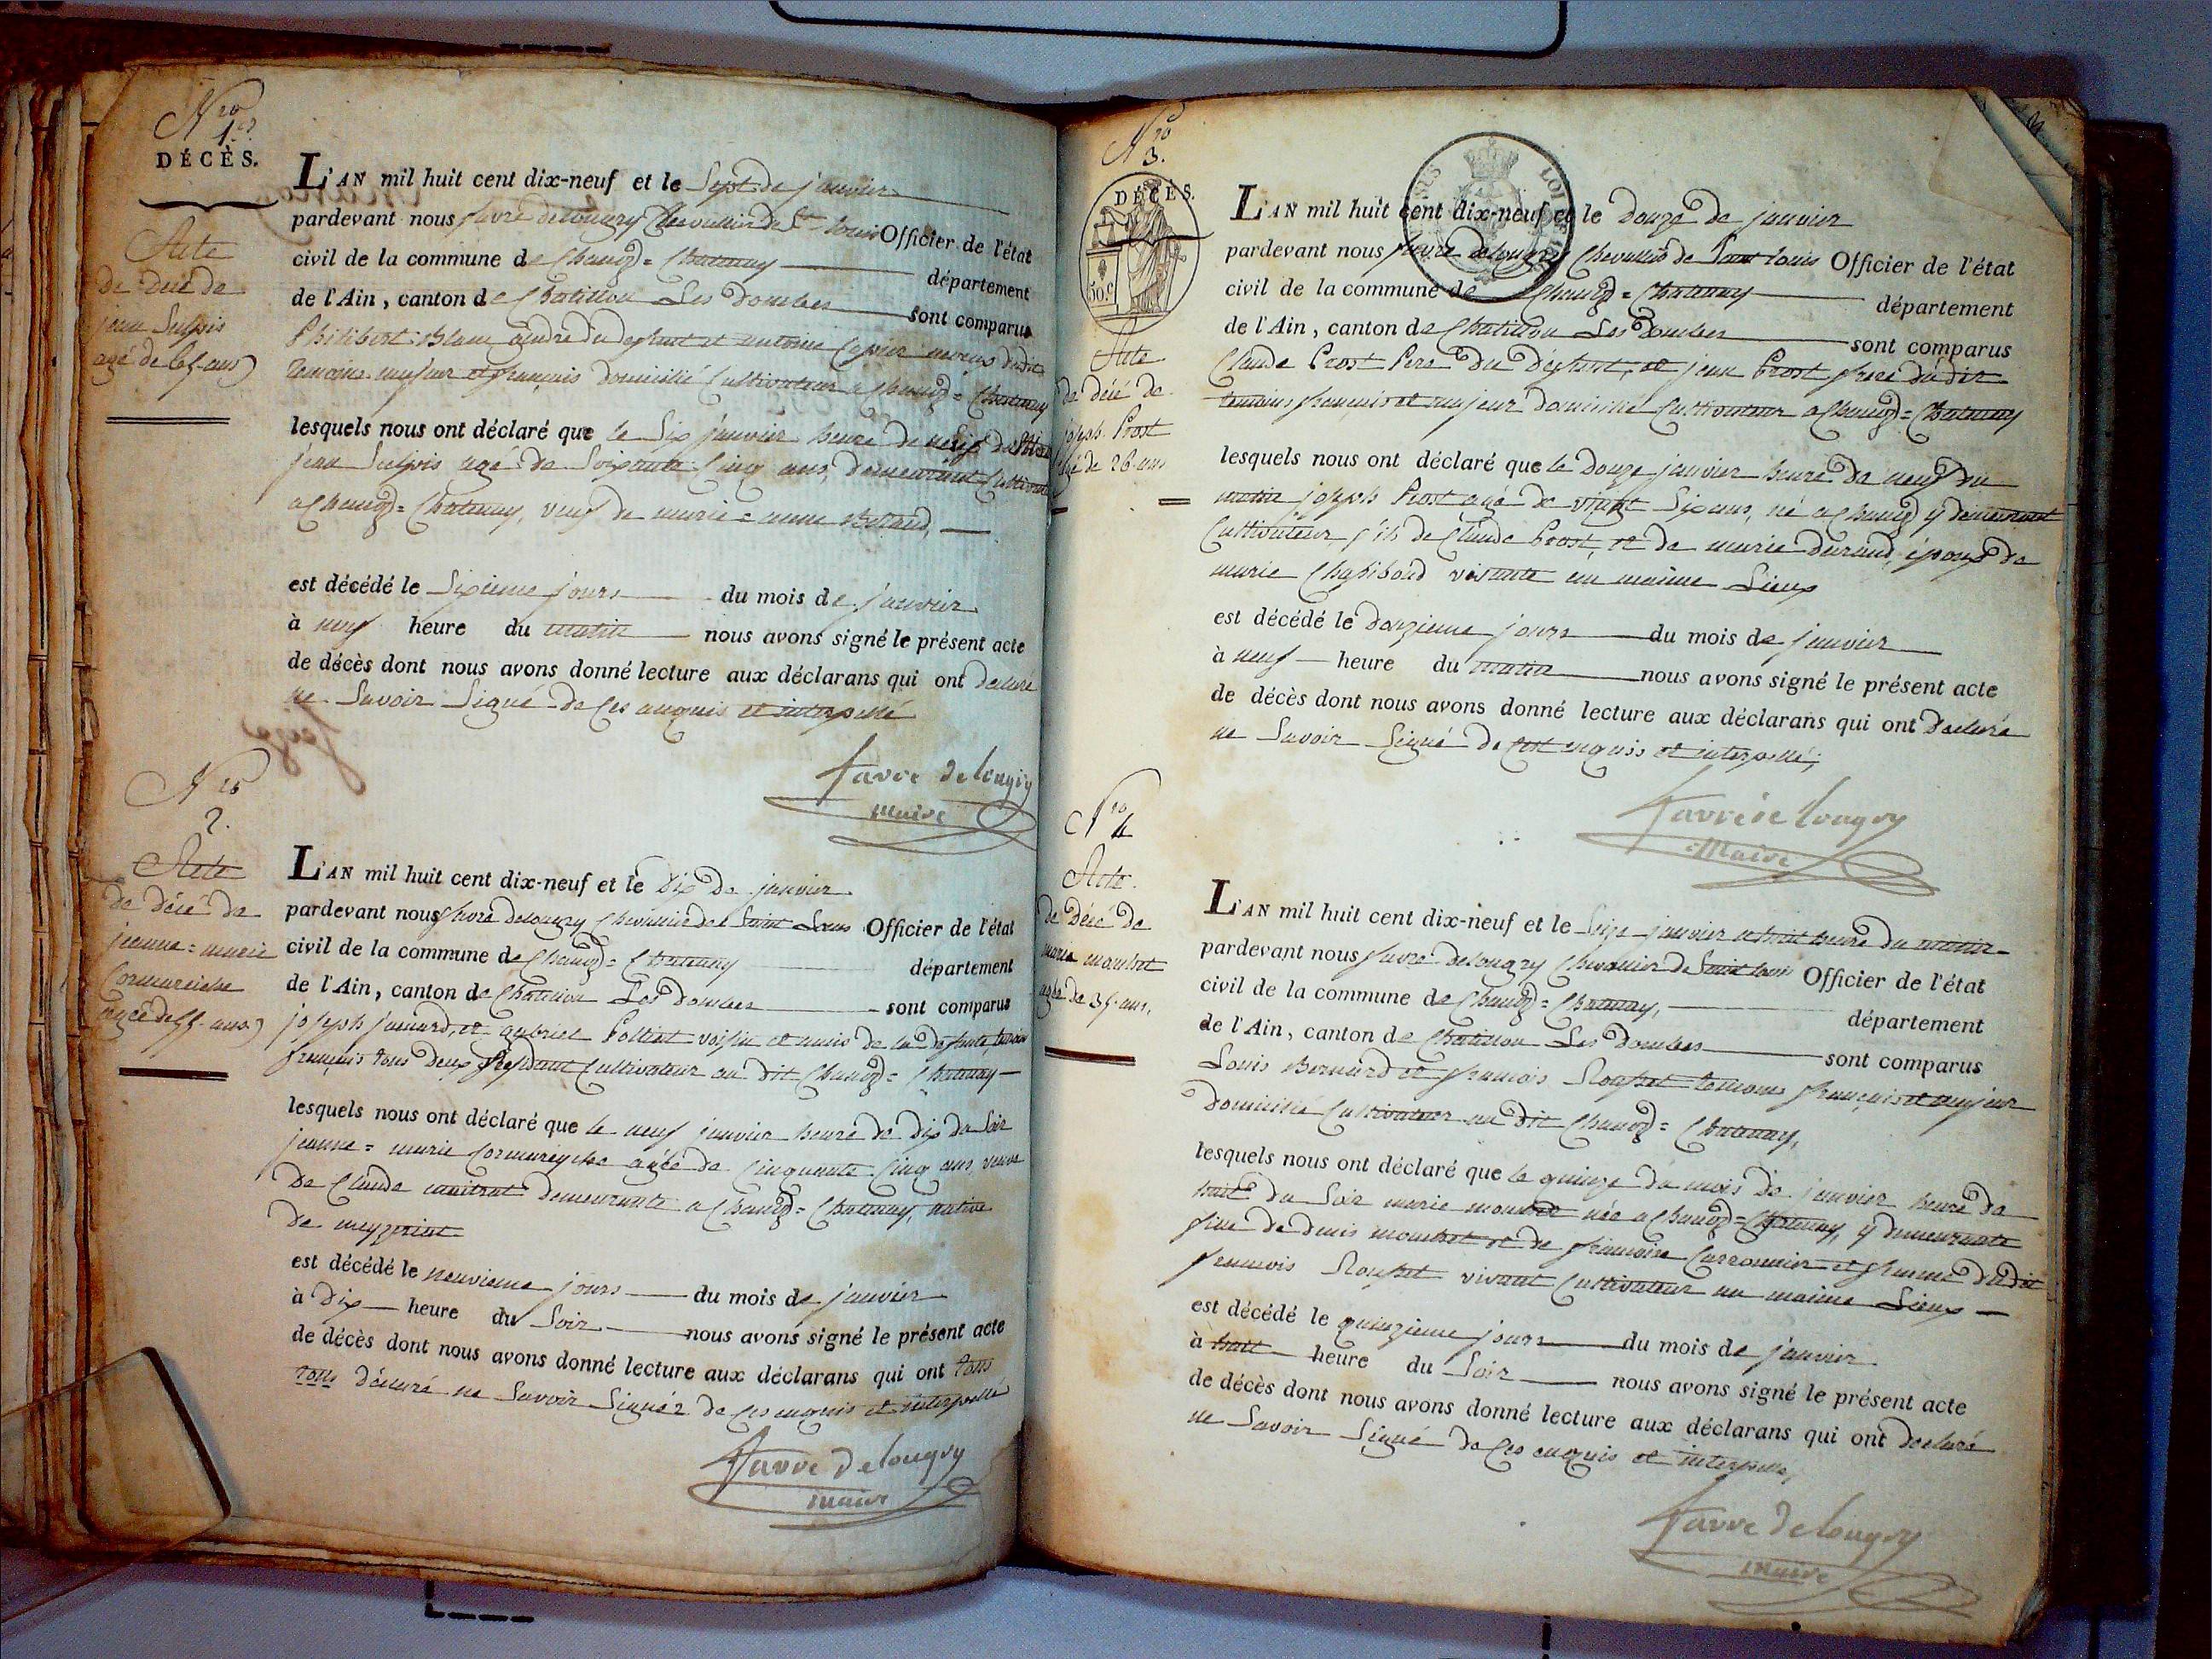 Nro
1er
DÉCÈS.
Acte
de décé de
jean Sulpis
agé de 65 ans
L'AN mil huit cent dix-neuf et le Sept de janvier
pardevant nous favre delongry Chevallier de St louis Officier de l'état
civil de la commune de Chanoz = Chatenay département
de l'Ain, canton de Chatillon Les Dombes sont comparus
Philibert Blanc gendre du defunt et antoine
temoins majeur et français domicilié Cultivateur a Chanoz = Chatenay
lesquels nous ont déclaré que le Six janvier heure de neuf du Matin
jean Sulpis agé de Soixante Cinq ans, demeurant Cultivateur
a Chanoz = Chatenay, veuf de marie = anne
est décédé le Sixieme jours du mois de janvier
à neuf heure du matin nous avons signé le présent acte
de décès dont nous avons donné lecture aux déclarans qui ont declaré
ne Savoir Signé de Ces anquis et interpellé
favre delongry
maire
Nro
2.
Acte
de décé de
jeanne = marie
Cormareiche
agée de 55 ans
L'AN mil huit cent dix-neuf et le Dix de janvier
pardevant nous favre delongry Chevallier de Saint Louis Officier de l'état
civil de la commune de Chanoz = Chatenay département
de l'Ain, canton de Chatillon Les Dombes sont comparus
joseph juenard, et gabriel Pollet voisin et amis de la defunte, temoin
français tous deux Cultivateur au dit Chanoz = Chatenay
lesquels nous ont déclaré que le neuf janvier heure de dix du Soir
jeanne = marie Cormareyche agée de Cinquante Cinq ans veuve
De Claude demeurante a Chanoz = Chatenay, native
de meyzeriat
est décédé le neuvieme jours du mois de janvier
à Dix heure du Soir nous avons signé le présent acte
de décès dont nous avons donné lecture aux déclarans qui ont tous
tous déclaré ne Savoir Signér de Ces enquis et interpellé
favre delongry
maire
Nro
3.
DÉCÈS.
50.c
Acte
de décé de
joseph Prost
agé de 26 ans
L'AN mil huit cent dix-neuf et le douze de janvier
pardevant nous favre delongry Chevallier de Saint louis Officier de l'état
civil de la commune de Chanoz = Chatenay département
de l'Ain, canton de Chatillon Les Dombes sont comparus
Claude Prost Pere du défunt, et jean Prost frere dudit
temoins français et majeur domicilié Cultivateur a Chanoz = Chatenay
lesquels nous ont déclaré que le douze janvier heure de neuf du
matin joseph Prost agé de vingt Six ans, né a Chanoz y demeurant
Cultivateur, fils de Claude Prost, et de marie durand, époux de
marie Chapiboud vivante au maime Lieux
est décédé le douzieme jours du mois de janvier
à neuf heure du matin nous avons signé le présent acte
de décès dont nous avons donné lecture aux déclarans qui ont Declaré
ne Savoir Signé de Cest enquis et interpellé,
favre de longry
Maire
Nro
4
Acte
de Décé de
marie
agée de 35 ans.
L'AN mil huit cent dix-neuf et le Seize janvier a huit heure du matin
pardevant nous favre delongry Chevallier de Saint louis Officier de l'état
civil de la commune de Chanoz = Chatenay, département
de l'Ain, canton de Chatillon Les Dombes sont comparus
Louis Bernard et françois Rousset temoins français et majeur
domicilié Cultivateur au dit Chanoz = Chatenay,
lesquels nous ont déclaré que le quinze du mois de janvier heure de
huit du Soir marie née a Chanoz = Chatenay, y demeurante
fille de denis et de françoise Carronnier et femme dudit
francois Rousset vivant Cultivateur au maime Lieux
est décédé le quinzieme jours du mois de janvier
à huit heure du Soir nous avons signé le présent acte
de décès dont nous avons donné lecture aux déclarans qui ont declaré
ne Savoir Signé de Ces enquis et interpellé,
favre delongry
maire